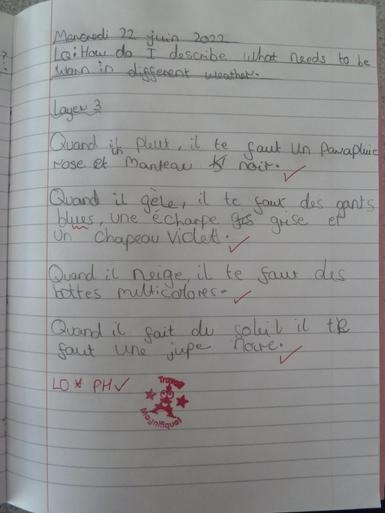 Mercredi 22 juin 2022
LO: How do I describe what needs to be
worn in different weather.
Layer 3
Quand il pleut, il te faut un parapluie
rose et un manteau noir.
Quand il gèle, il te faut des gants
blues, une écharpe grise et
un chapeau violet.
Quand il neige, il te faut des
bottes multicolores.
Quand il fait du soleil il te
faut une jupe noire.
LO * PH ✓
Travail
Magnifique!